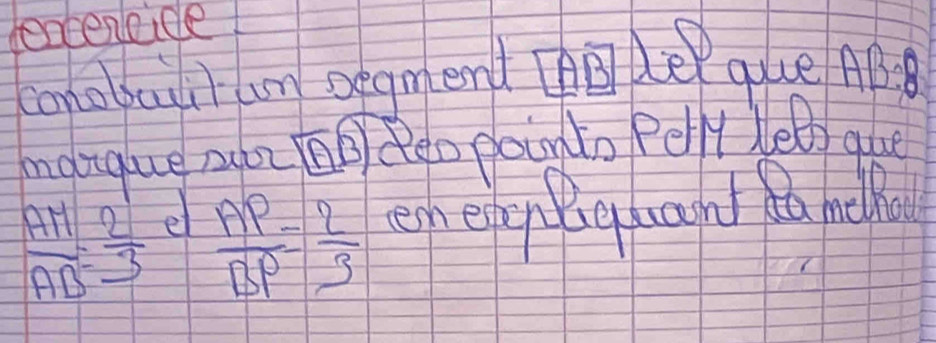 exercice
Construit un segment [AB] tel que AB=8
marque sur [AB] des points P et M tels que
AM/AB = 2/3 et AP/BP = 2/3 en expliquant ta méthode